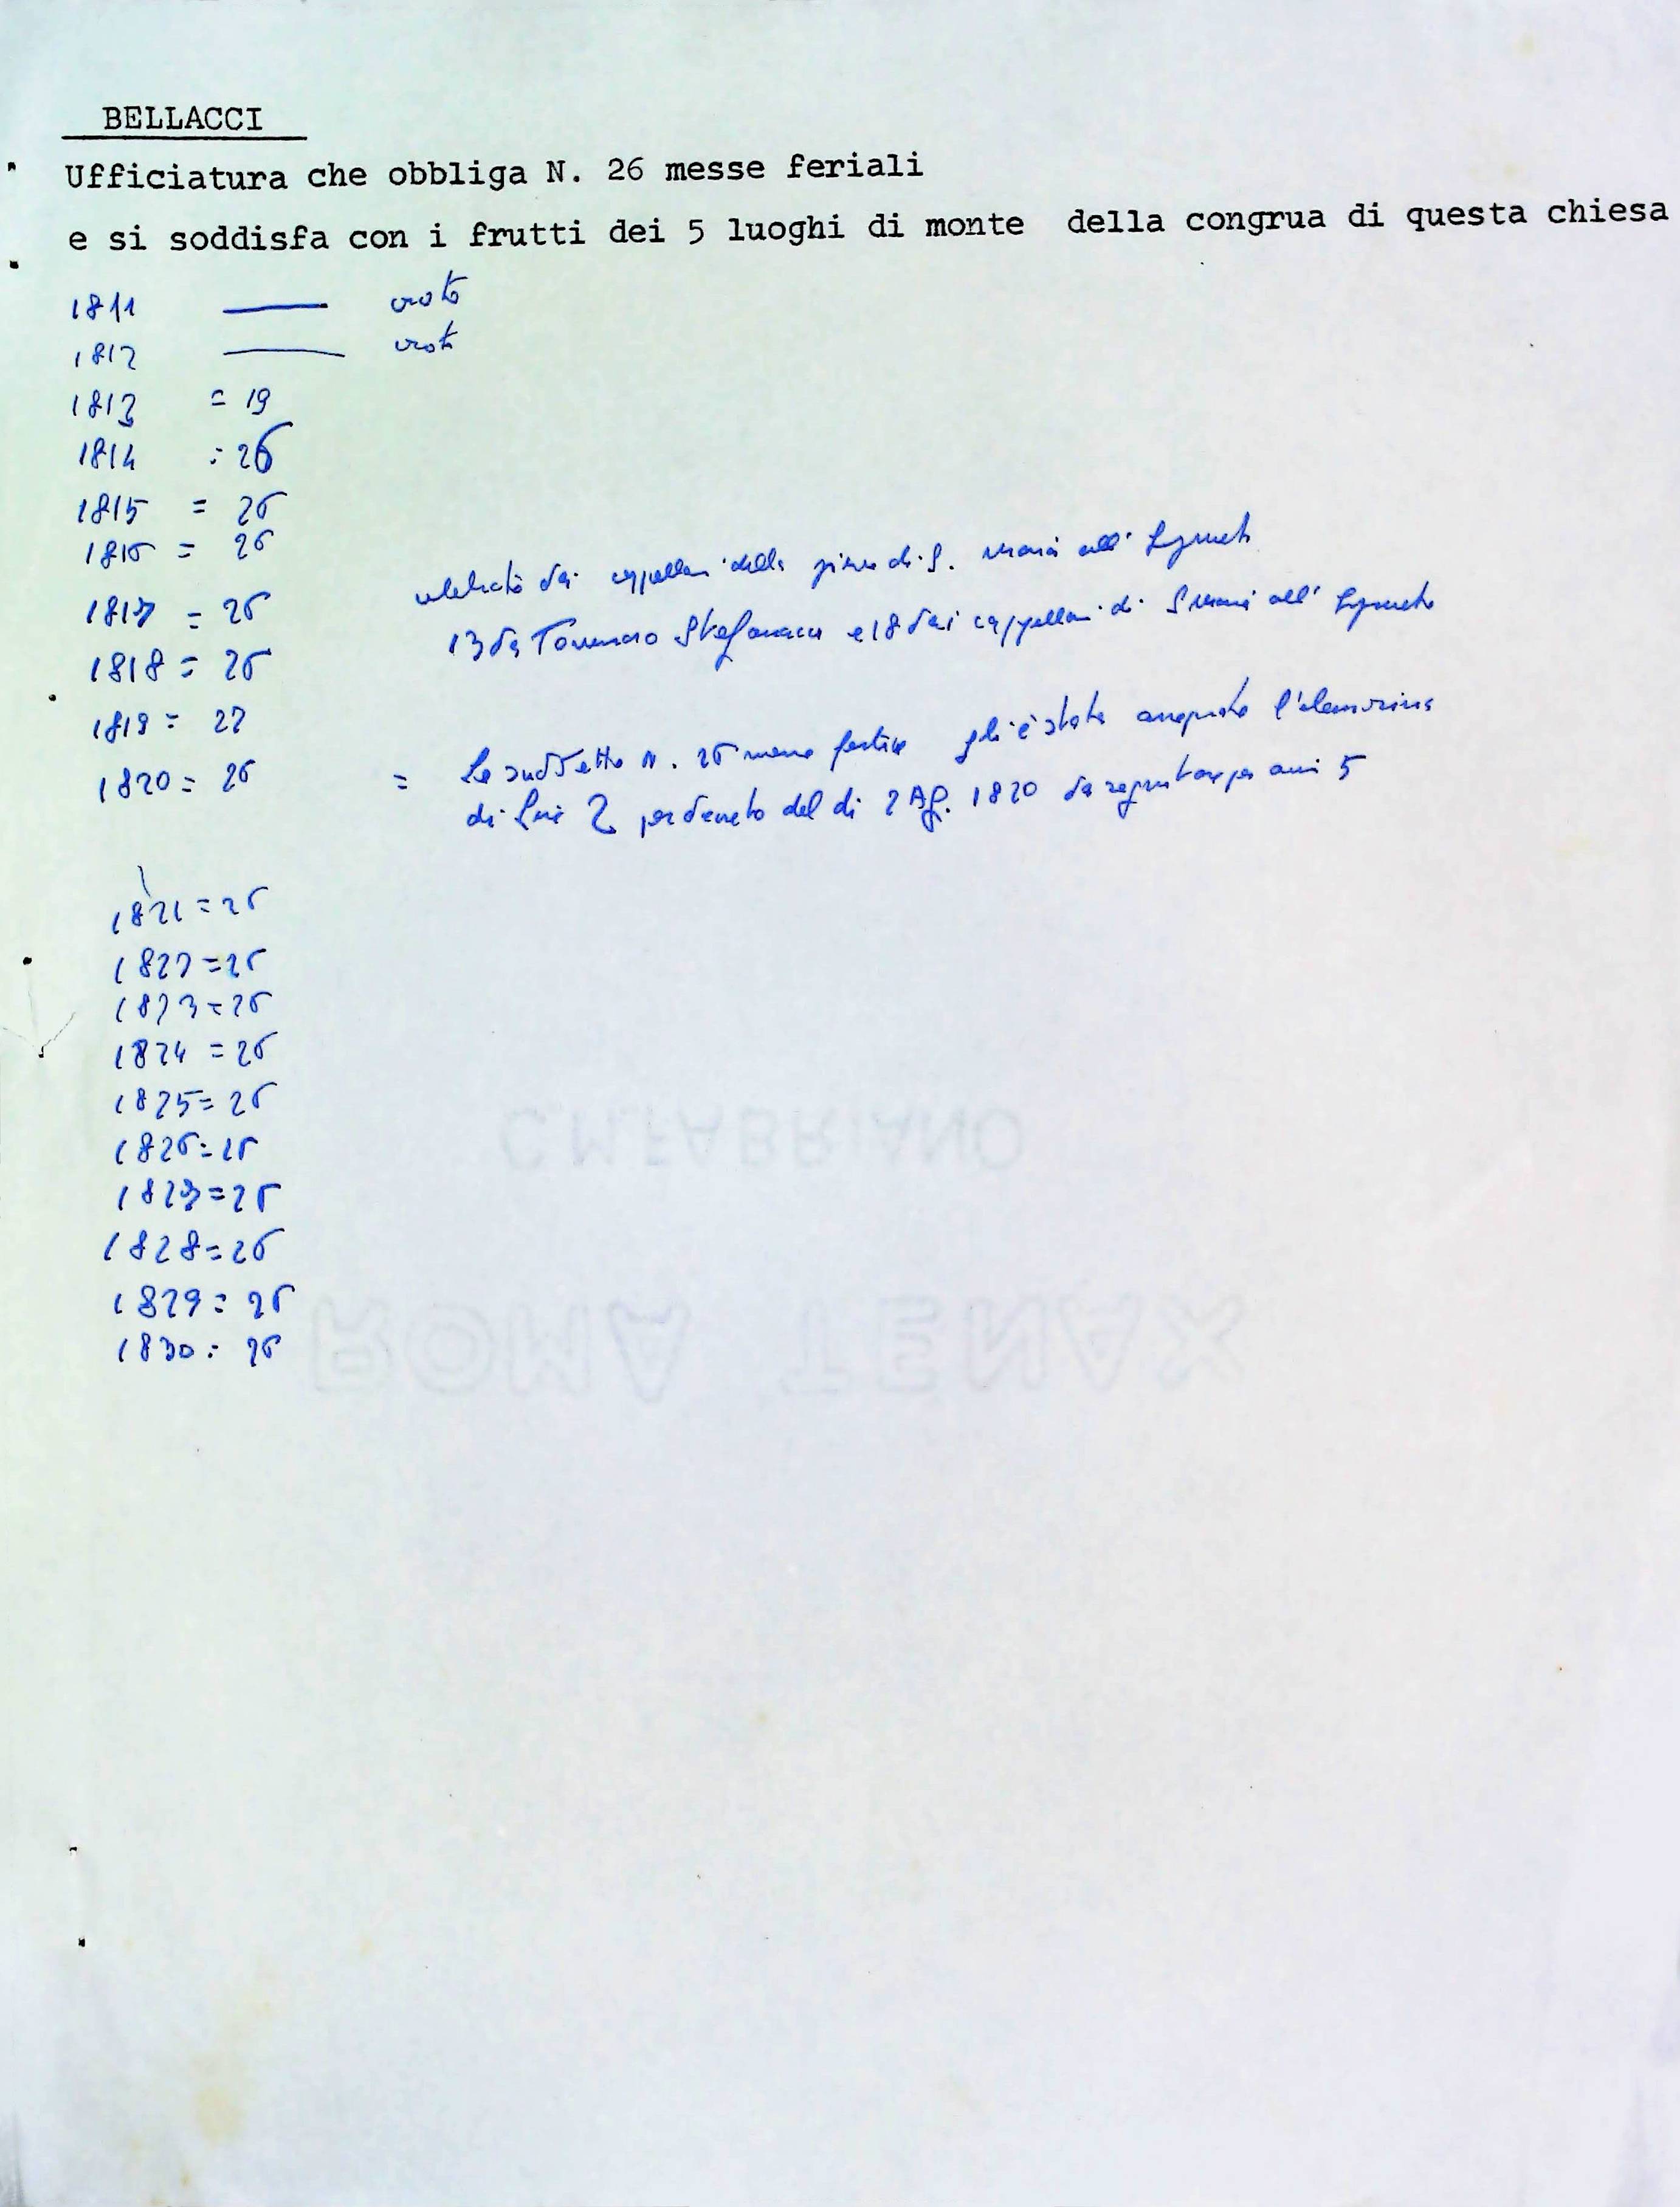 BELLACCI
Ufficiatura che obbliga N. 26 messe feriali
e si soddisfa con i frutti dei 5 luoghi di monte della congrua di questa chiesa
1811 —— vuoto
1812 —— vuoto
1813 = 19
1814 : 26
1815 = 26
1816 = 26 celebrate dai cappellani della pieve di S. Maria all'
1817 = 26 13 da Tommaso Stefanacci e 18 dai cappellani di S Maria all'
1818 = 26
1819 = 27
1820 = 26 = Le suddette N. 26 messe festive gli è stata l'elemosina
di Lire 2 per decreto del di 2 Ag. 1820 da per anni 5
1821 = 26
1822 = 26
1823 = 26
1824 = 26
1825 = 26
1826 = 26
1827 = 26
1828 = 26
1829 = 26
1830 : 26
C.M.FABRIANO
ROMA TENAX